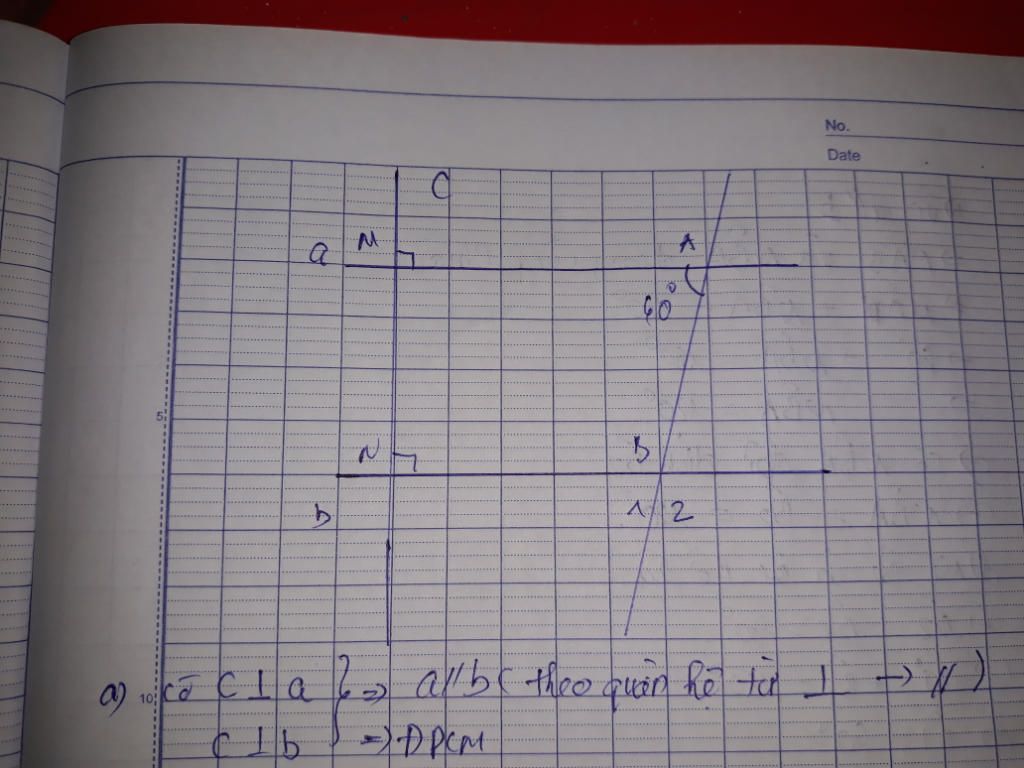 No.
Date
C
a M A
60°
5
N B
b 1 2
a) 10 có C ⊥ a } => a // b ( theo quan hệ từ ⊥ → // )
C ⊥ b => ĐPCM